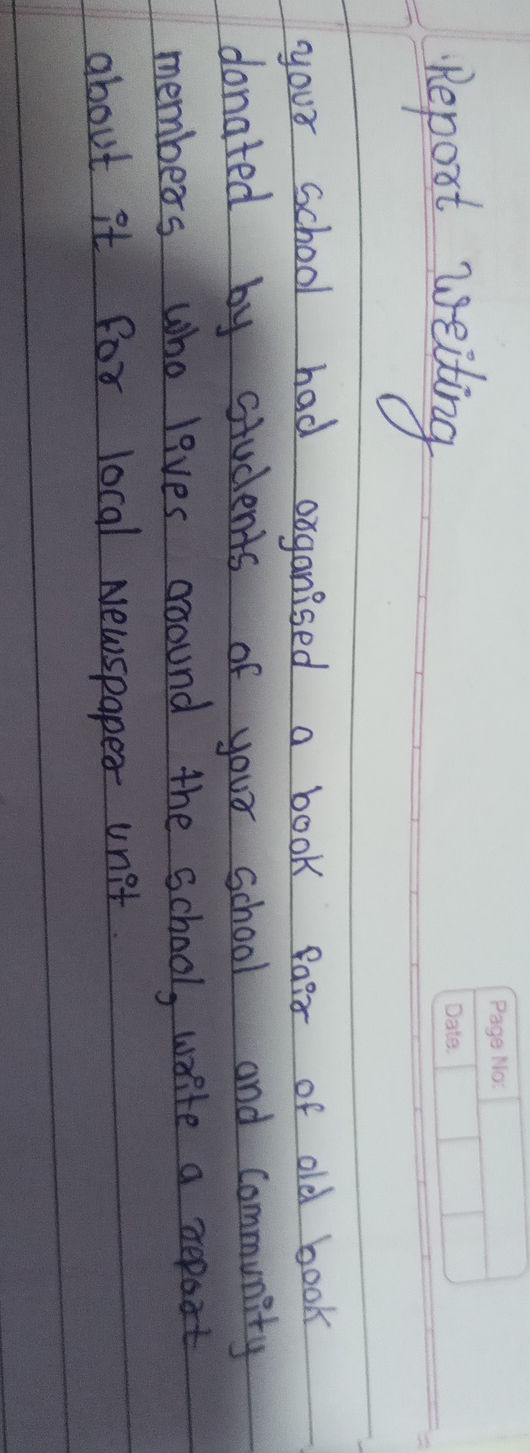 Page No:
Date:
Report Writing
your school had organised a book fair of old book
donated by students of your school and community
members who lives around the school, write a report
about it for local Newspaper unit.